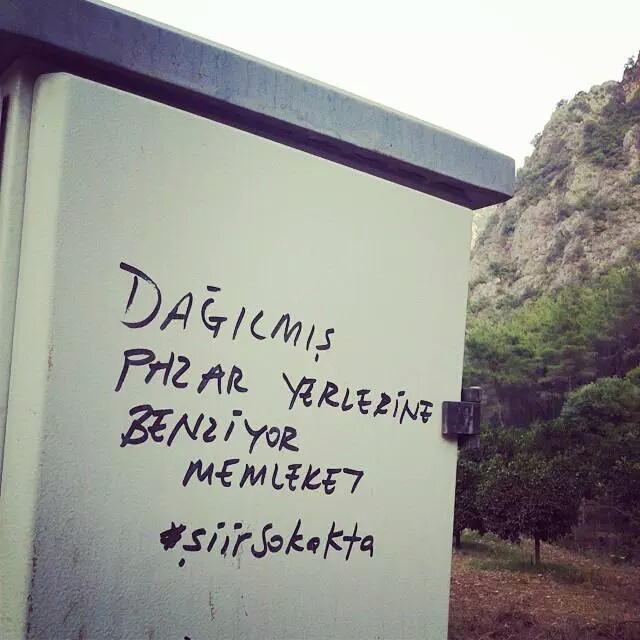 DAĞILMIŞ
PAZAR YERLERİNE
BENZİYOR
MEMLEKET
#şiirsokakta